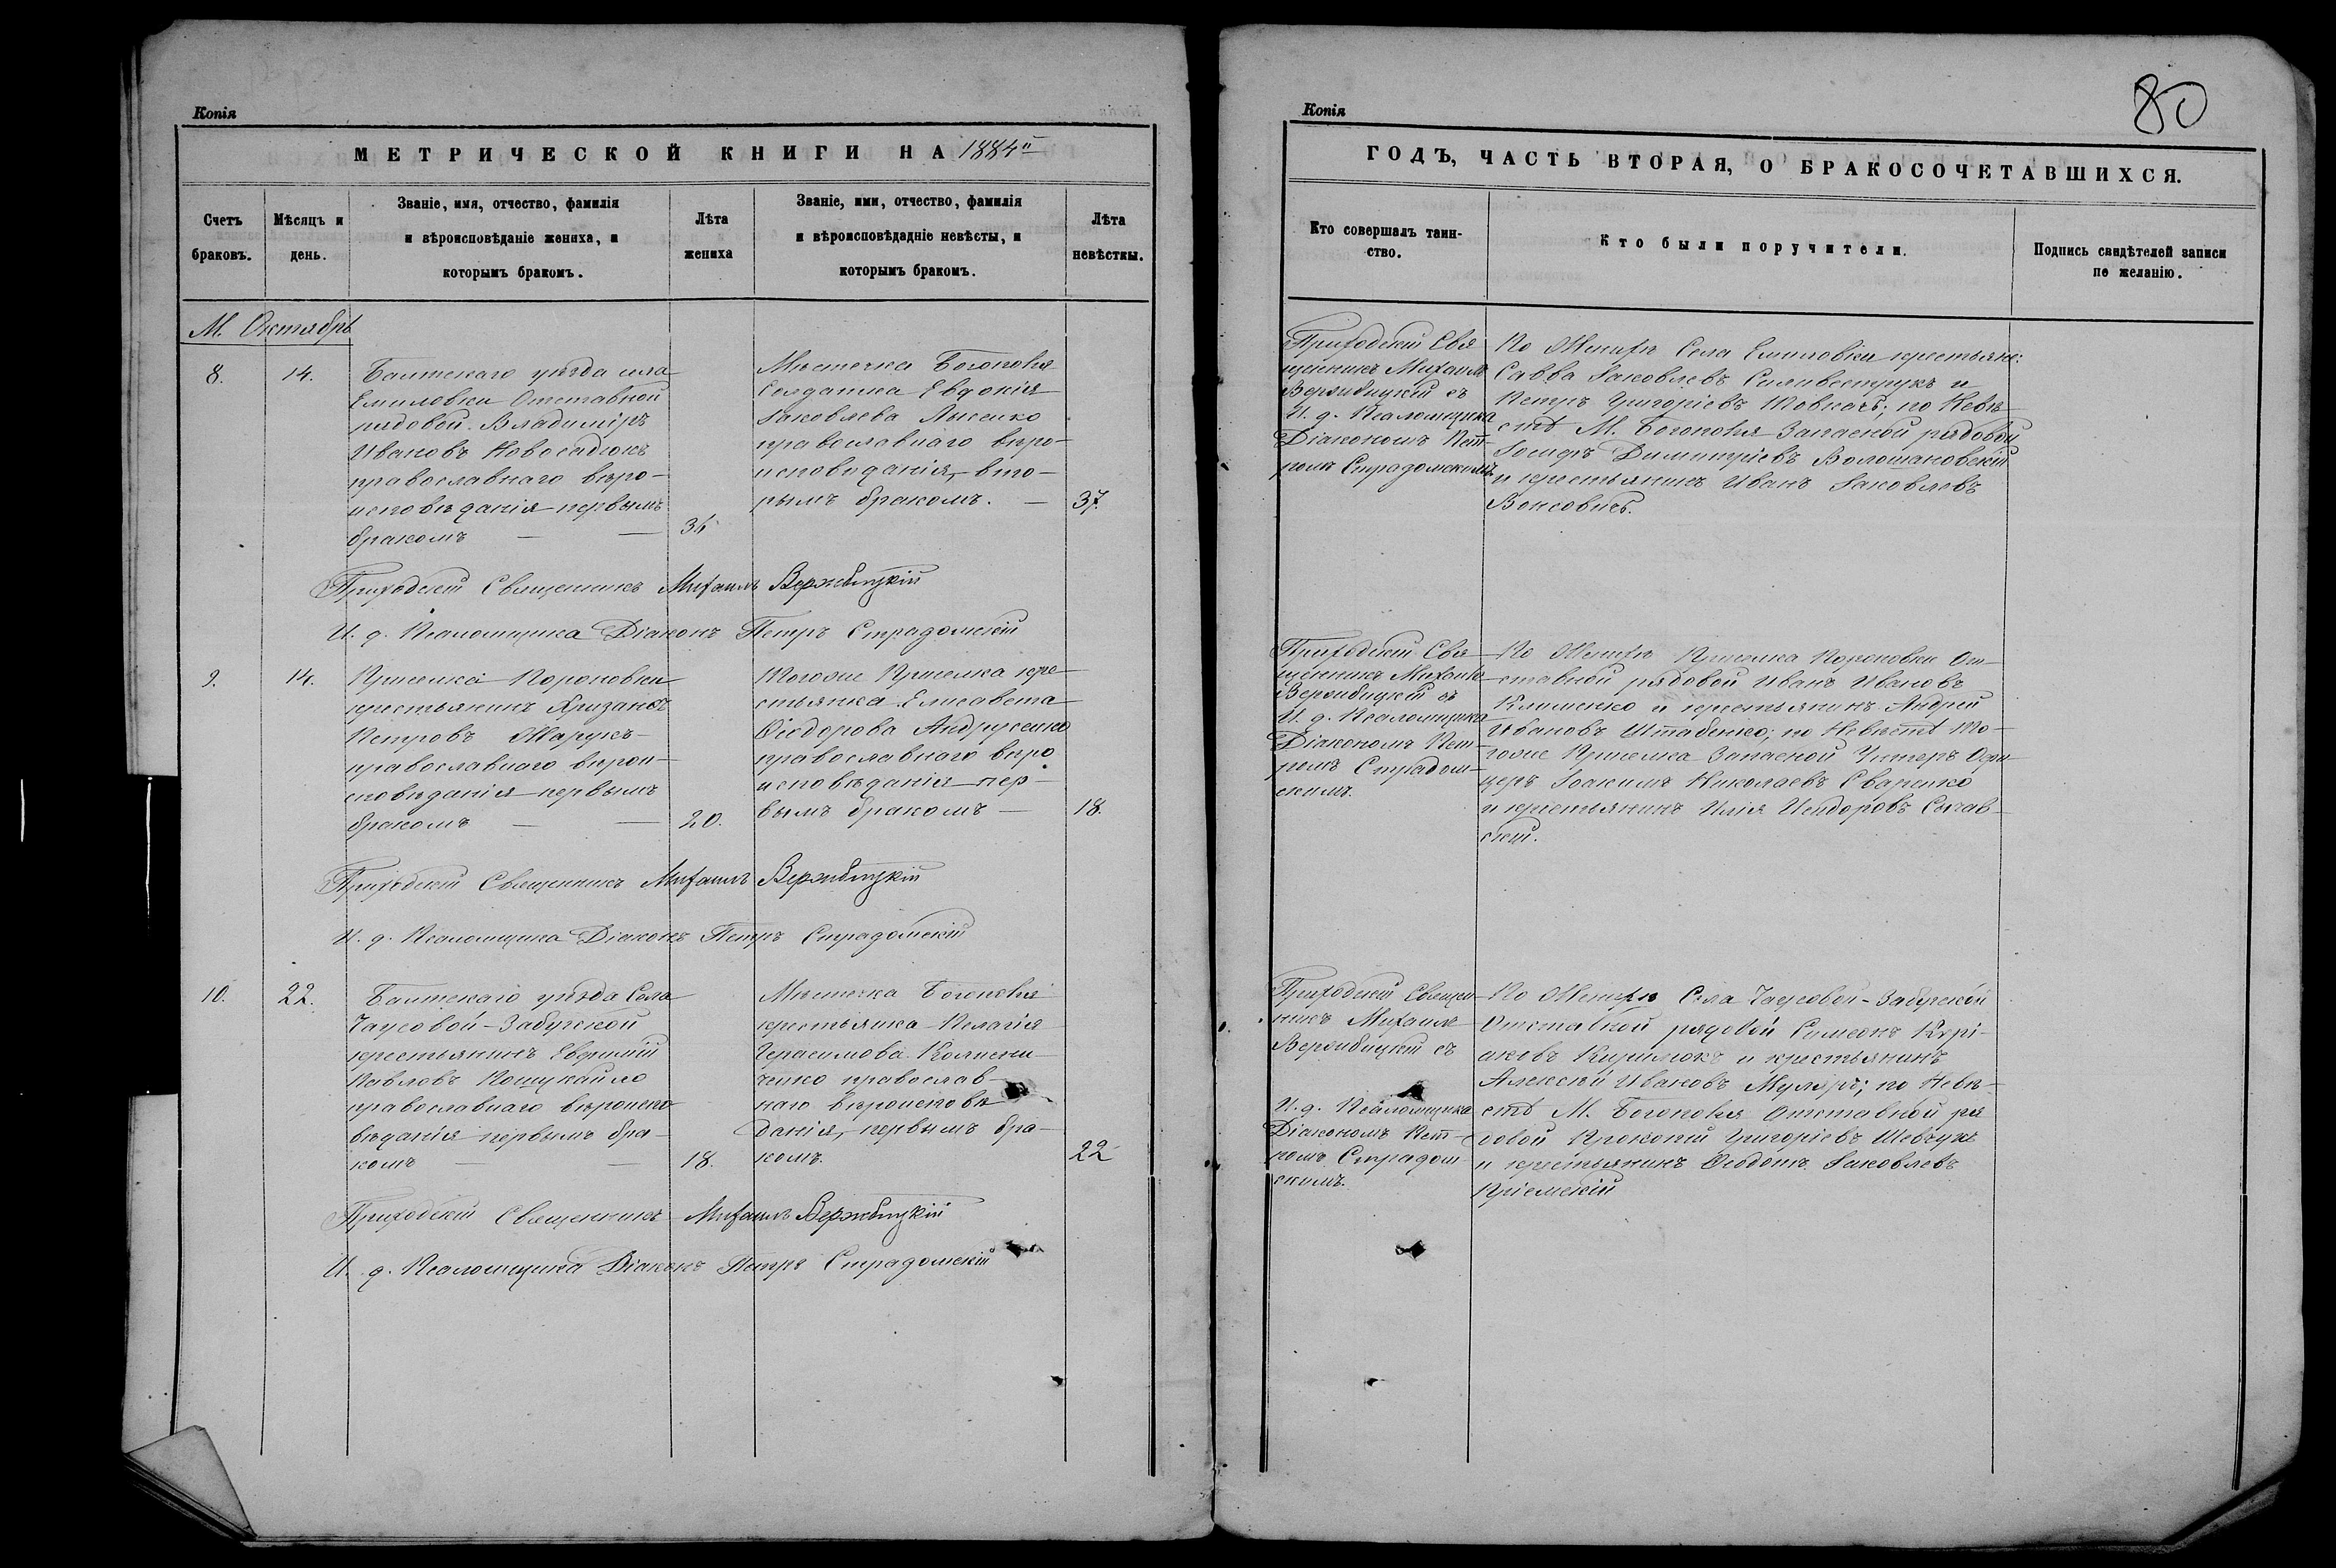 Копія
МЕТРИЧЕСКОЙ КНИГИ НА 1884й
Счетъ браковъ.
Мѣсяцъ и день.
Званіе, имя, отчество, фамилія
и вѣроисповѣданіе жениха, и
которымъ бракомъ.
Лѣта
жениха
Званіе, имя, отчество, фамилія
и вѣроисповѣдадніе невѣсты, и
которымъ бракомъ.
Лѣта
невѣстны.
М. Октябрь
8.
14.
Балтскаго уѣзда села
Емиловки Отставной
рядовой Владиміръ
Ивановъ Новосадюкъ
православнаго вѣро-
исповѣданія первымъ
бракомъ
34
Мѣстечка Богополя
Солдатка Евдокія
Іаковлева Лысенко
православнаго вѣро-
исповѣданія, вто-
рымъ бракомъ.
37.
Приходскій Священникъ Михаилъ Вержбицкій
И. д. Псаломщика Діаконъ Петръ Страдомскій
9.
14.
Приселка Короновки
крестьянинъ Хризанѳъ
Петровъ Жарукъ
православнаго вѣрои-
сповѣданія первымъ
бракомъ
20.
Тогоже Приселка кре-
стьянка Елисавета
Ѳеодорова Андрусенко
православнаго вѣро
исповѣданія пер-
вымъ бракомъ
18.
Приходскій Священникъ Михаилъ Вержбицкій
И. д. Псаломщика Діаконъ Петръ Страдомскій
10.
22.
Балтскаго уѣзда Села
Чаусовой-Забугской
крестьянинъ Евфимій
Павловъ Пошукайло
православнаго вѣроиспо
вѣданія первымъ бра-
комъ
18.
Мѣстечка Богополя
крестьянка Пелагія
Герасимова
ченко православ-
наго вѣроисповѣ
данія, первымъ бра-
комъ.
22
Приходскій Священникъ Михаилъ Вержбицкій
И. д. Псаломщика Діаконъ Петръ Страдомскій
Копія
80
ГОДЪ, ЧАСТЬ ВТОРАЯ, О БРАКОСОЧЕТАВШИХСЯ.
Кто совершалъ таин-
ство.
Кто были поручители.
Подпись свидѣтелей записи
по желанію.
Приходскій Свя
щенникъ Михаилъ
Вержбицкій съ
И. д. Псаломщика
Діакономъ Пет-
ромъ Страдомскимъ
По Женихѣ Села Емиловки крестьяне:
Савва Іаковлевъ Силивеструкъ и
Петръ Григоріевъ Товкачъ; по Невѣ-
стѣ М. Богополя Запасной рядовой
Іосифъ Димитріевъ Волошановскій
и крестьянинъ Иванъ Іаковлевъ
Вонсовичъ.
Приходскій Свя-
щенникъ Михаилъ
Вержбицкій съ
И. д. Псаломщика
Діакономъ Пет-
ромъ Страдом-
скимъ.
По Женихѣ Приселка Короновки От-
ставной рядовой Иванъ Ивановъ
Клименко и крестьянинъ Андрей
Ивановъ Штабенко; по Невѣстѣ То-
гоже Приселка Запасной Унтеръ Офи-
церъ Іоакимъ Николаевъ Сваренко
и крестьянинъ Илія Исидоровъ Сычав-
скій.
Приходскій Священ-
никъ Михаилъ
Вержбицкій съ
И. д. Псаломщика
Діакономъ Пет-
ромъ Страдом-
скимъ.
По Женихѣ Села Чаусовой-Забугской
Отставной рядовой Симеонъ Кирі-
аковъ и крестьянинъ
Алексѣй Ивановъ Муляръ; по Невѣ-
стѣ М. Богополя Отставной ря
довой Прокопій Григоріевъ Шевчукъ
и крестьянинъ Ѳеодотъ Іаковлевъ
Кріемскій